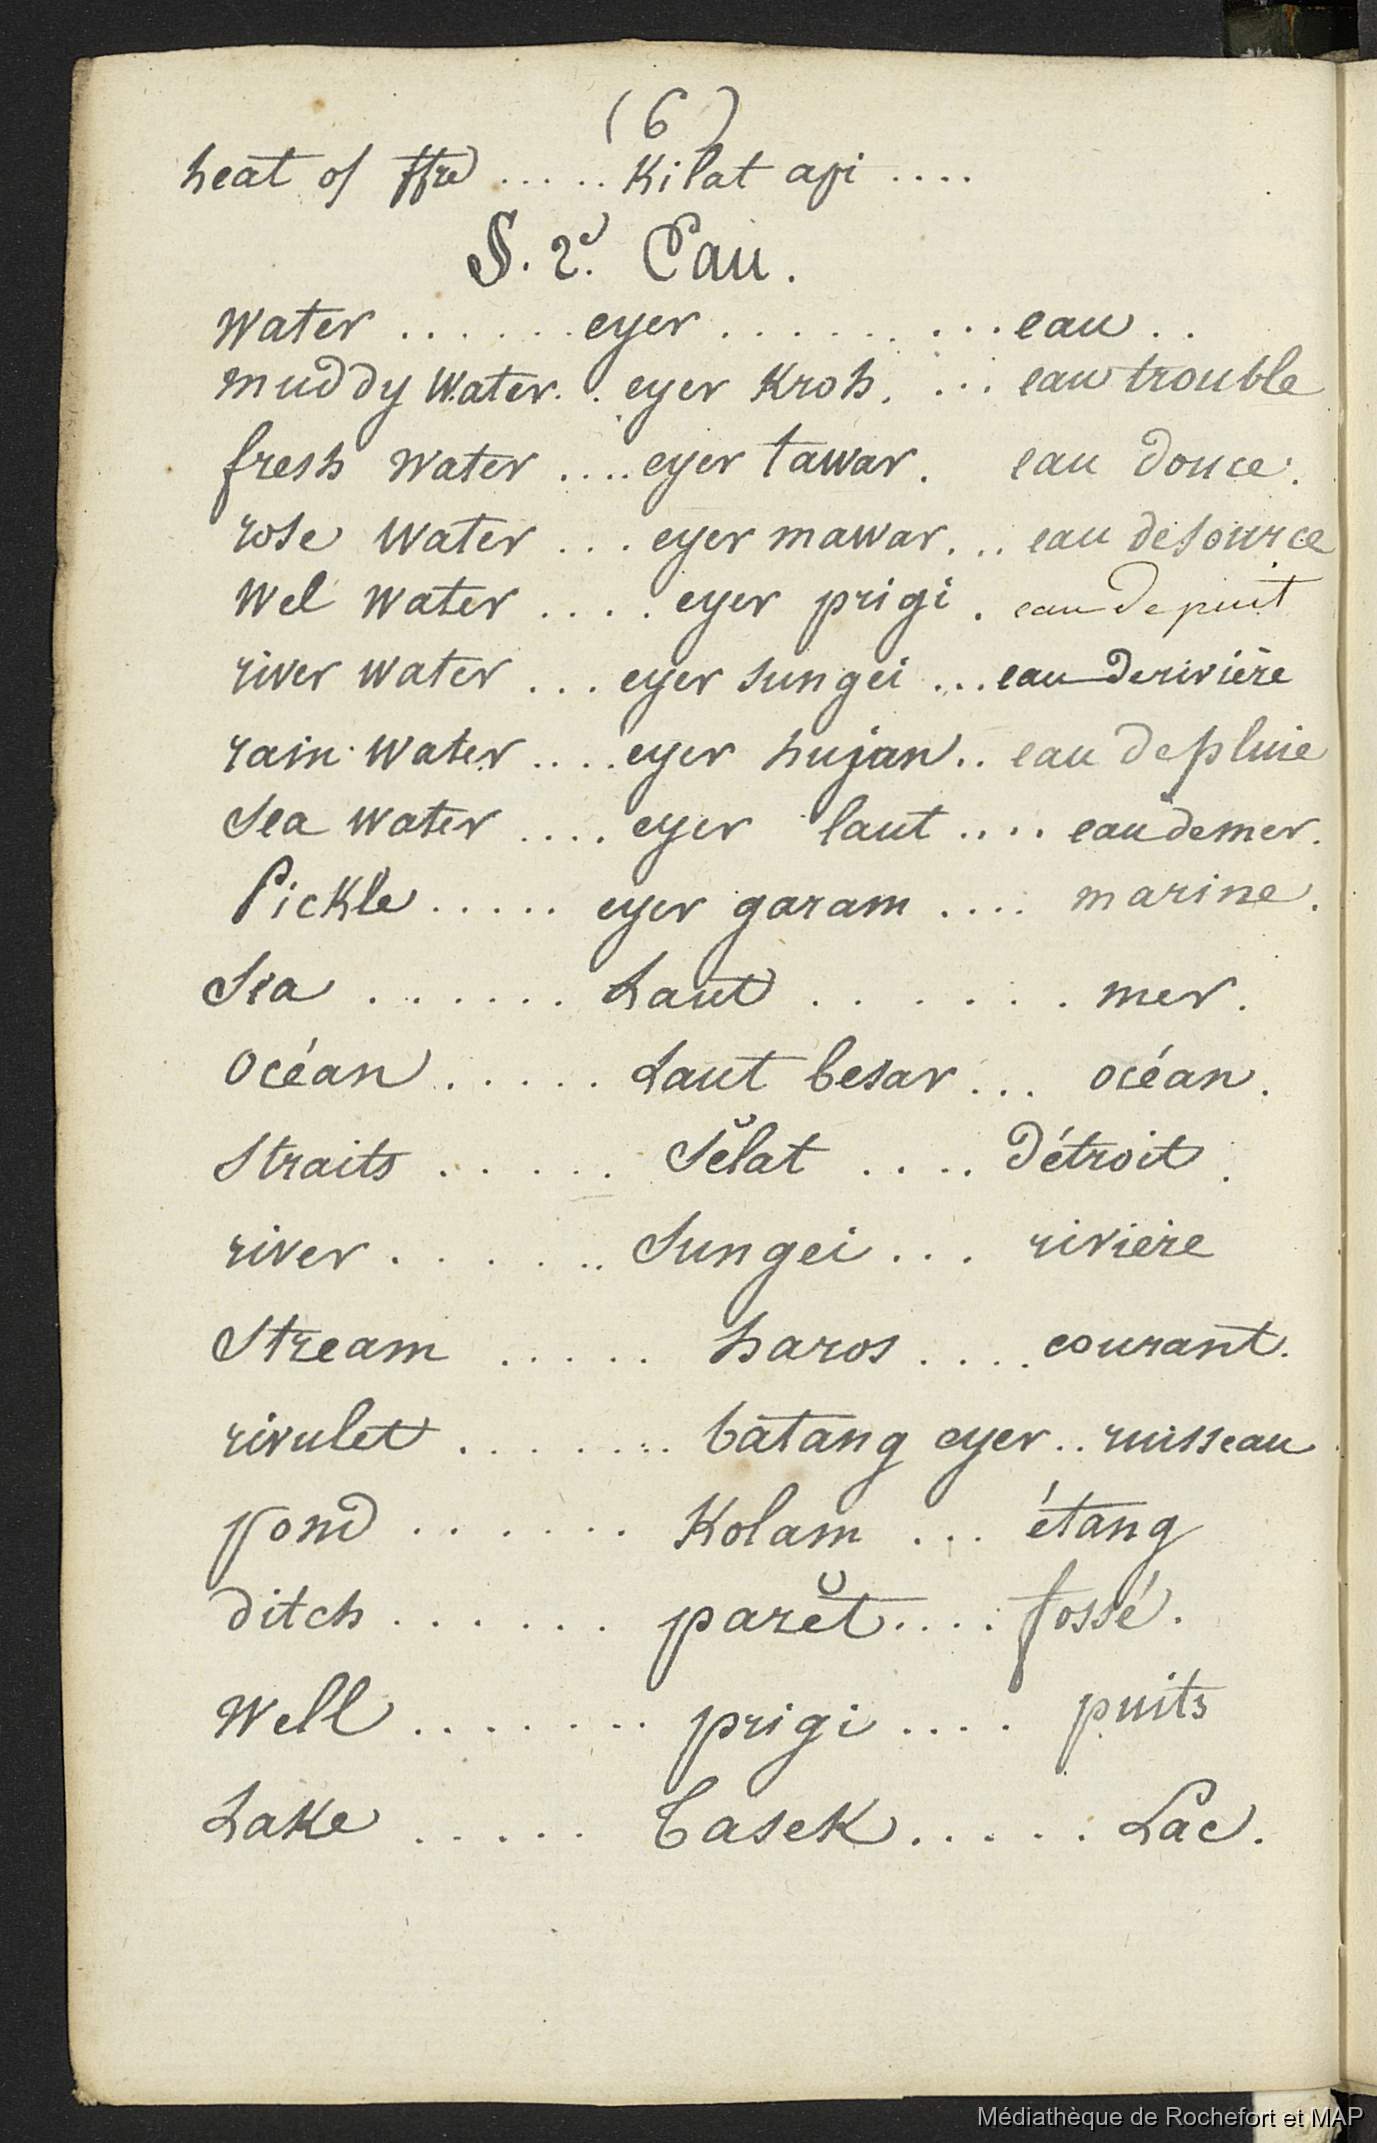 (6)
heat of ffre ..... Kilat api ....
S. 2e. Eau.
Water ...... eyer ......... eau ..
muddy Water .. eyer Kroh. ... eau trouble
fresh Water .... eyer tawar. eau douce.
rose Water ... eyer mawar... eau de source
Wel Water .... eyer prigi. eau de puit
river Water ... eyer sungei ... eau de rivière
rain Water .... eyer hujan.. eau de pluie
Sea Water .... eyer laut .... eau de mer.
Pickle ..... eyer garam .... marine.
Sea ...... Laut ...... mer.
Océan ..... Laut besar ... océan.
Straits ..... Sĕlat .... Détroit.
river ...... Sungei ... rivière
Stream ..... haros .... courant.
rivulet ....... batang eyer .. ruisseau
pond ...... Kolam ... étang
ditch ...... parĕt .... fossé.
Well ....... prigi .... puits
Lake ..... Tasek ..... Lac.
Médiathèque de Rochefort et MAP